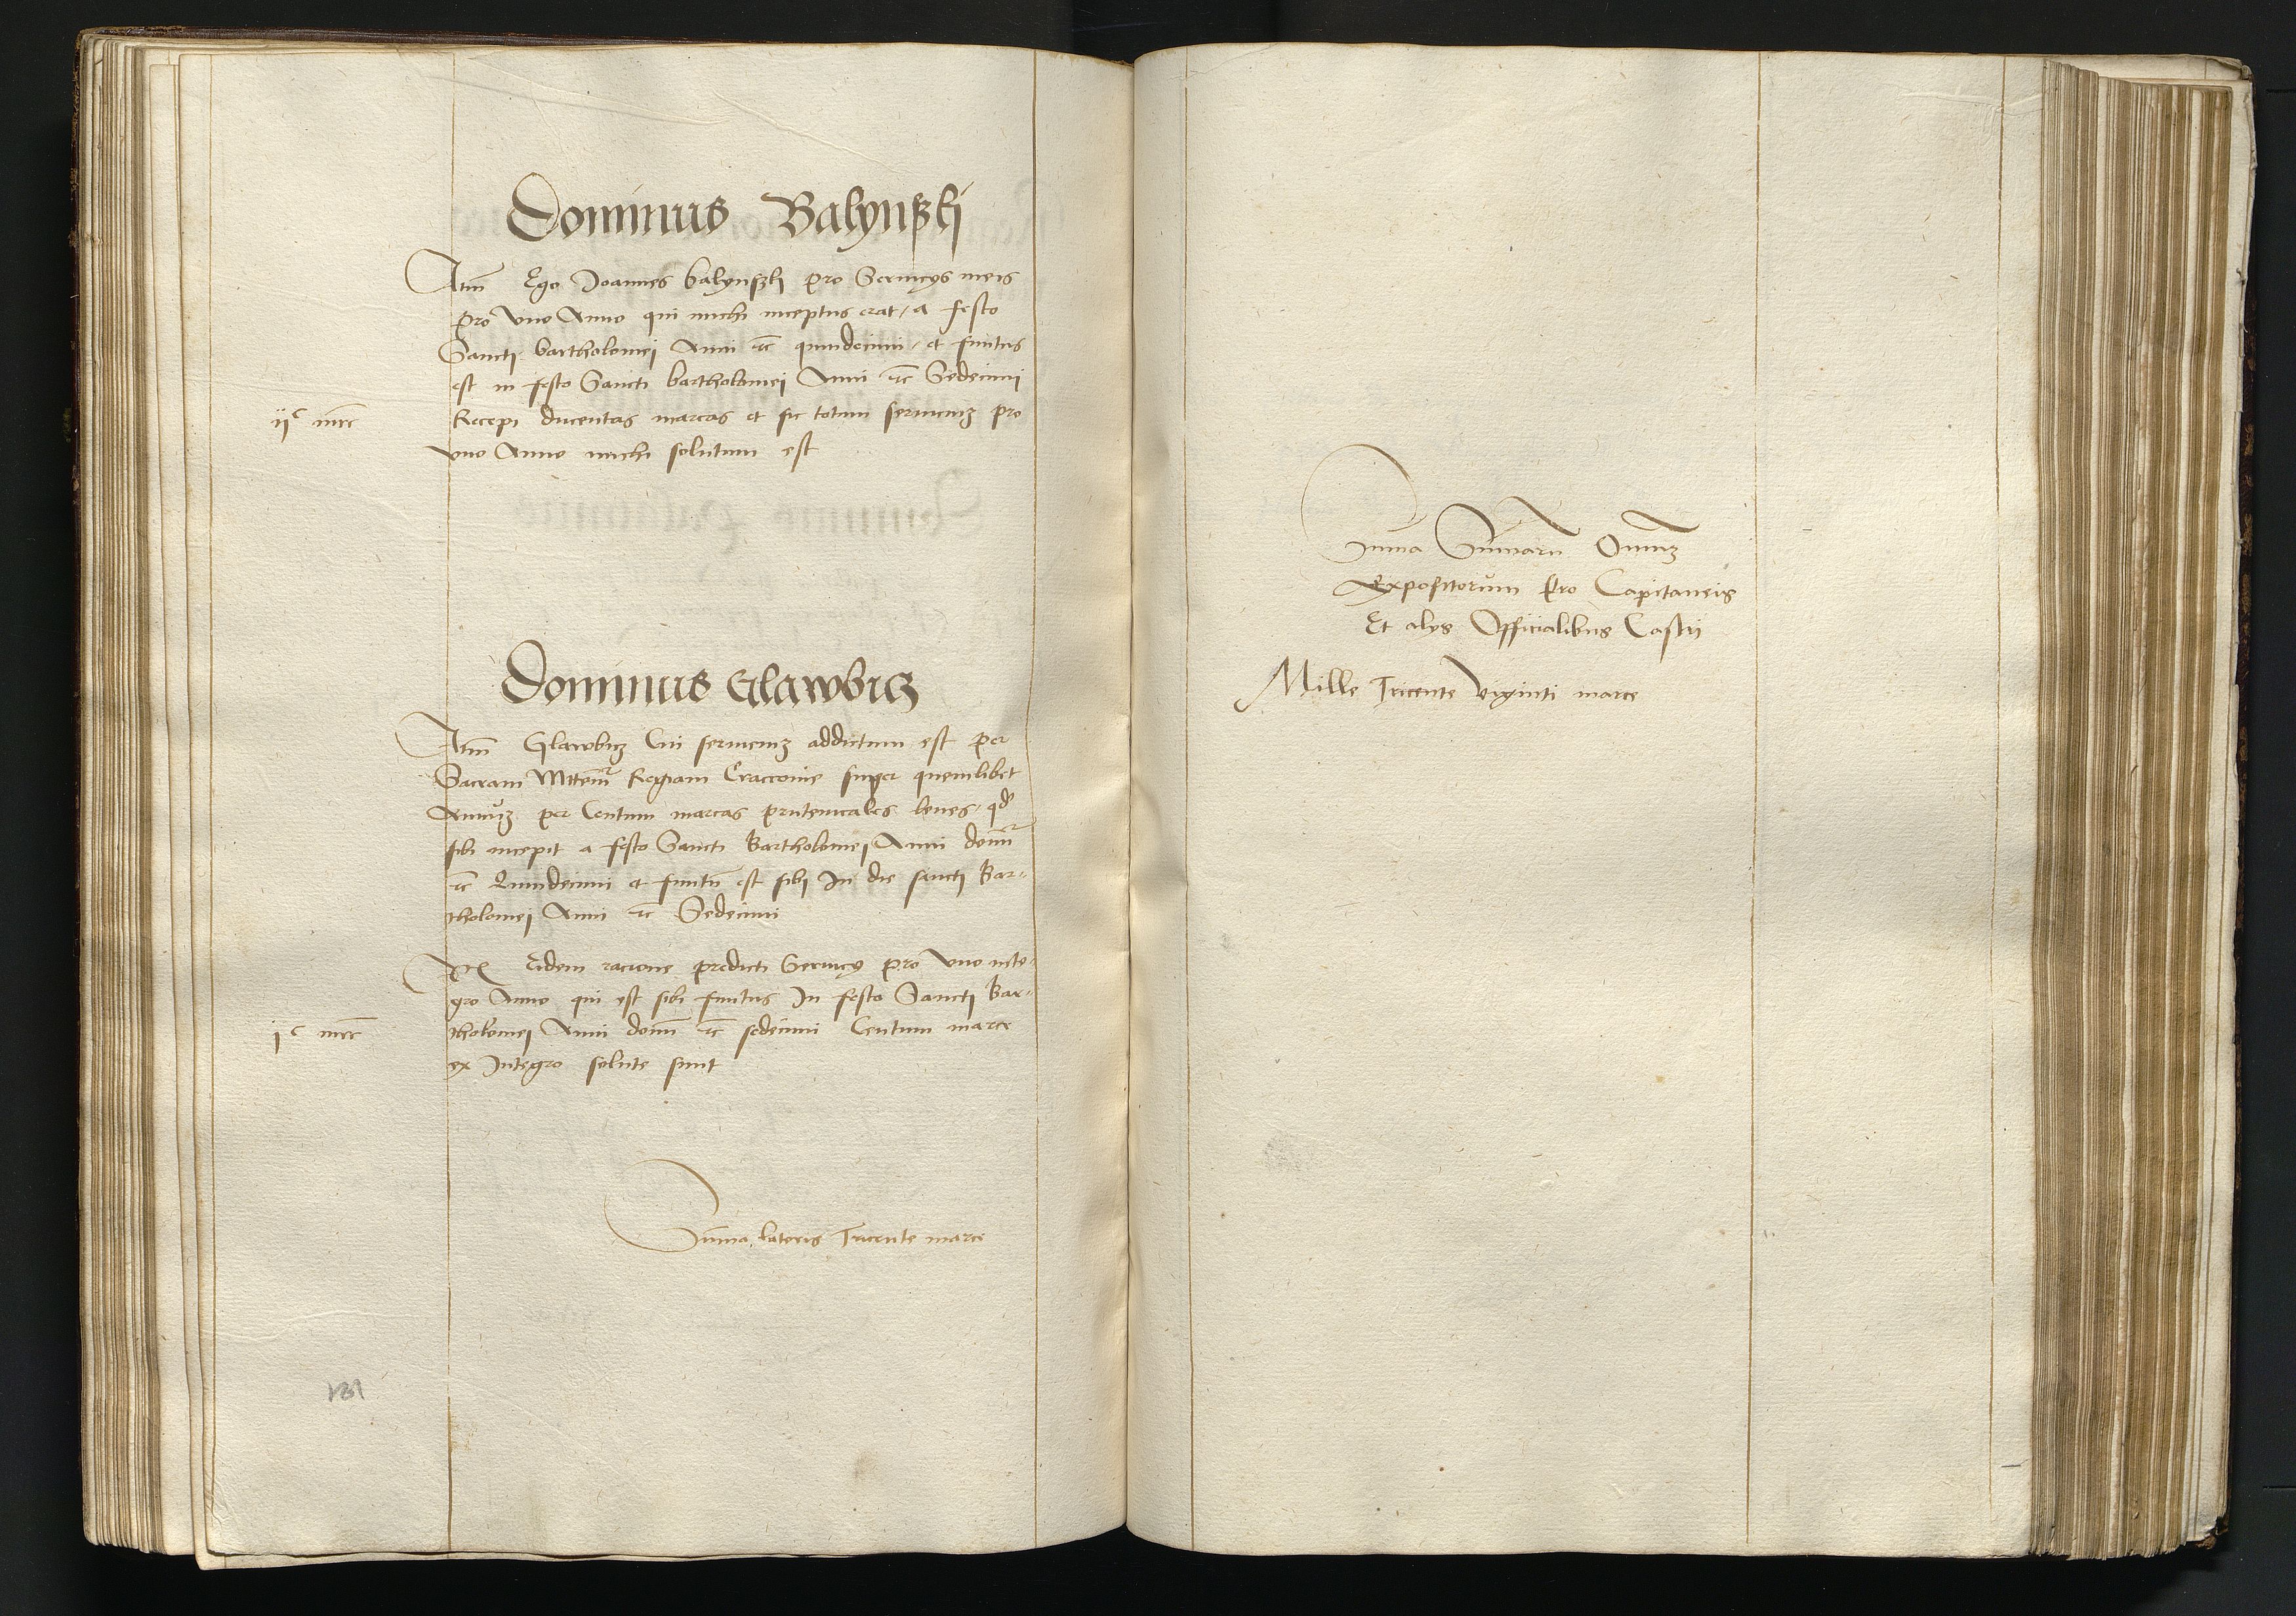 Dominus Balynßkj
Itm̄ Ego Joannes balynßkj pro Seruicys meis
pro vno Anno qui michi inceptus erat, a festo
Sancti bartholomej Anni ꝛc quindecimi, et finitus
est in festo Sancti bartholomej Anni ꝛc Sedecimi
ijᶜ mrc Recepi ducentas marcas et sic totum seruiciuʒ pro
vno Anno michi solutum est
Dominus Glawbicz
Itm̄ Glawbicz Cui seruiciuʒ addictum est per
Sacram Mttem̄ Regiam Craccouie super quemlibet
Annuʒ per Centum marcas prutenicales leues, qd
sibi incepit a festo Sancti Bartholomej Anni domī
ꝛc Quindecimi et finitū est sibi In die sancti Bar-
tholomej Anni ꝛc Sedecimi
Eidem racione predicti Seruicy pro vno inte-
gro Anno qui est sibi finitus In festo Sancti Bar-
jᶜ mrc tholomej Anni domī ꝛc sedecimi Centum marce
ex Integro solute sunt
Sūma lateris Tricente marce
181
Sūma Sūmarū Omniuʒ
Expositorum Pro Capitaneis
Et alys Officialibus Castrj
Mille Tricente viginti marce